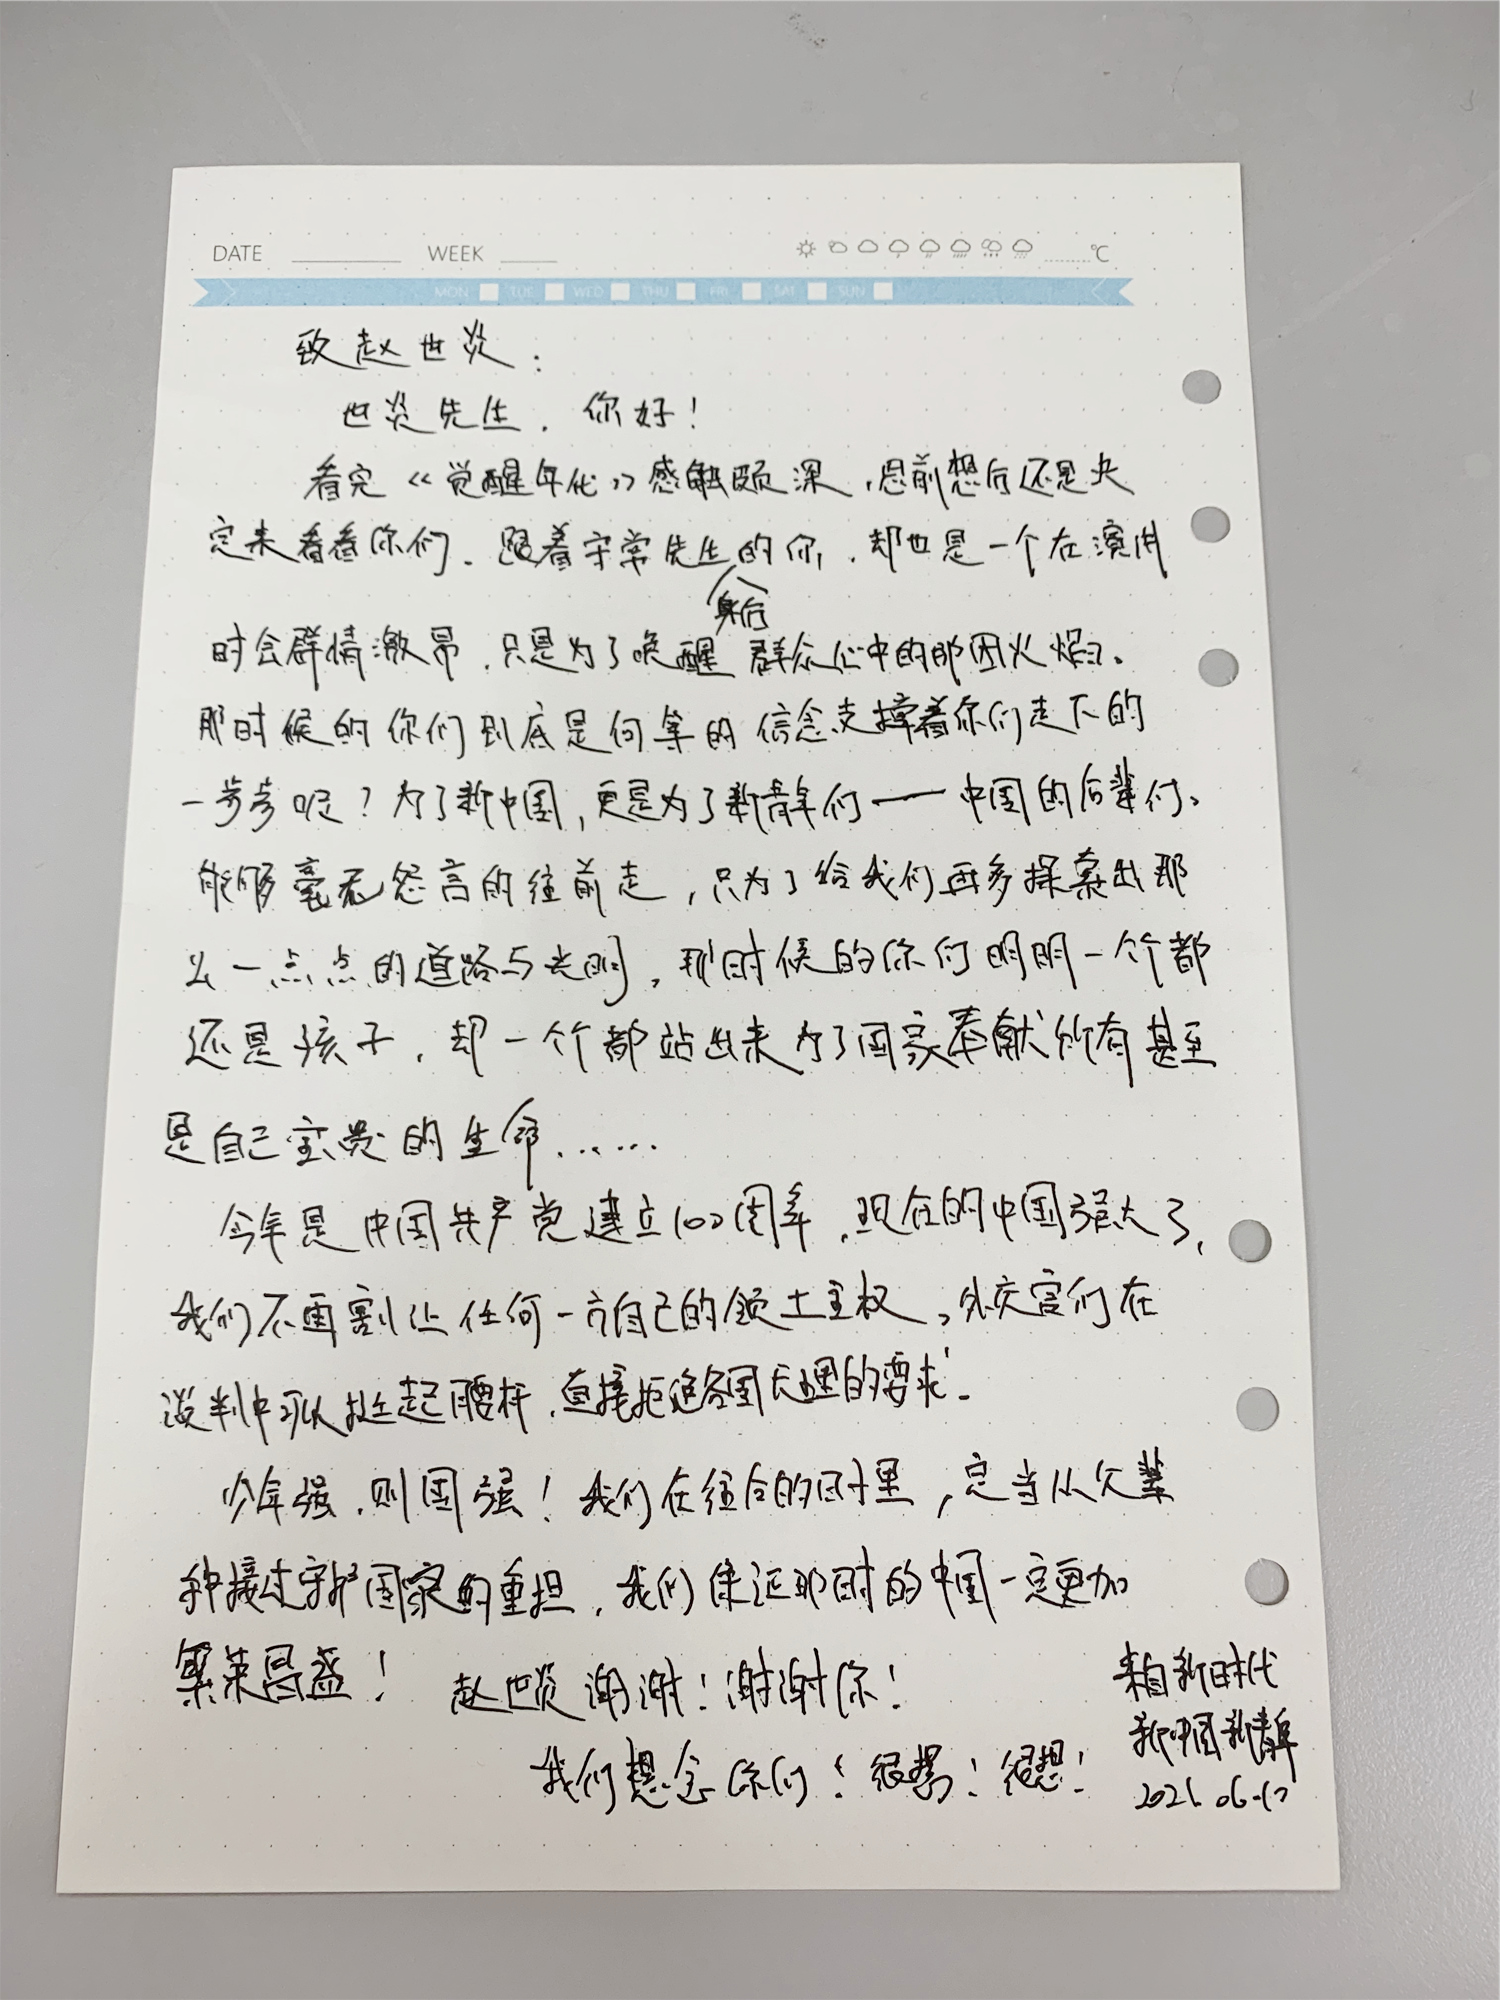 DATE WEEK ℃
MON TUE WED THU FRI SAT SUN
致赵世炎：
世炎先生，你好！
看完《觉醒年代》感触颇深，思前想后还是决
定来看看你们。跟着守常先生身后的你，却也是一个在演讲
时会群情激昂，只是为了唤醒群众心中的那团火焰。
那时候的你们到底是何等的信念支撑着你们走下的
一步步呢？为了新中国，更是为了新青年们——中国的后辈们。
能够毫无怨言的往前走，只为了给我们再多探索出那
么一点点的道路与光明，那时候的你们明明一个个都
还是孩子，却一个个都站出来为了国家奉献所有甚至
是自己宝贵的生命……
今年是中国共产党建立100周年，现在的中国强大了，
我们不再割让任何一方自己的领土主权，外交官们在
谈判中可以挺起腰杆，直接拒绝各国无理的要求。
少年强，则国强！我们在往后的日子里，定当从父辈
手中接过守护国家的重担，我们保证那时的中国一定更加
繁荣昌盛！赵世炎谢谢！谢谢你！
我们想念你们！很想！很想！
来自新时代
新中国新青年
2021.06.17